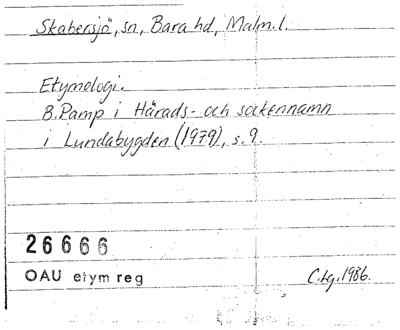 Skabersjö, sn, Bara hd, Malm.l.
Etymologi.
B.Pamp i Härads- och sockennamn
i Lundabygden (1979), s.9.
26666
OAU etym reg
C.Lg.1986.